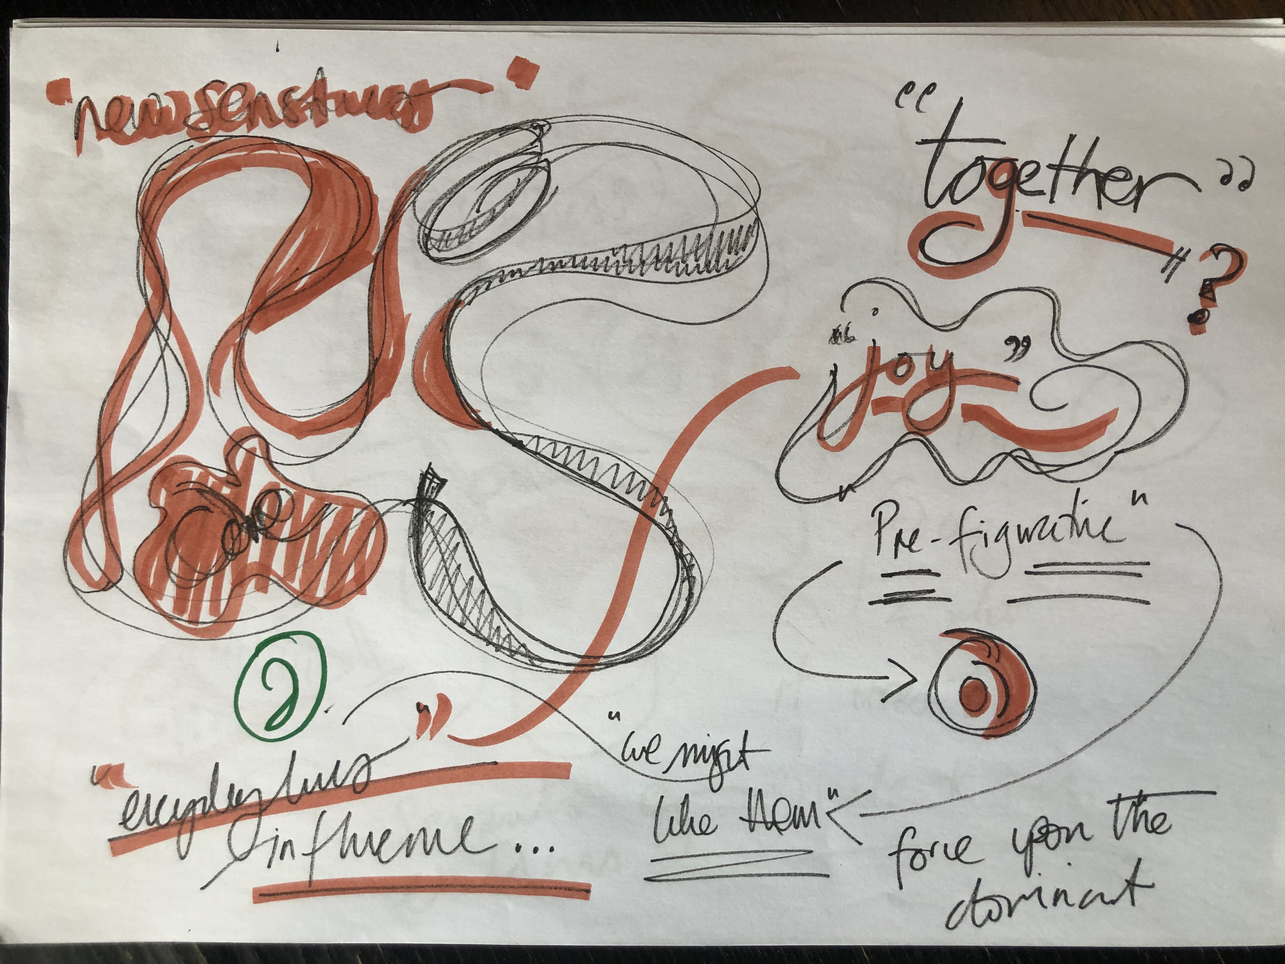 "new
"together"
?
"joy"
"Pre-figurative"
core
2
"everyday lives"
influence...
"we might
like them"
force upon the
dominant